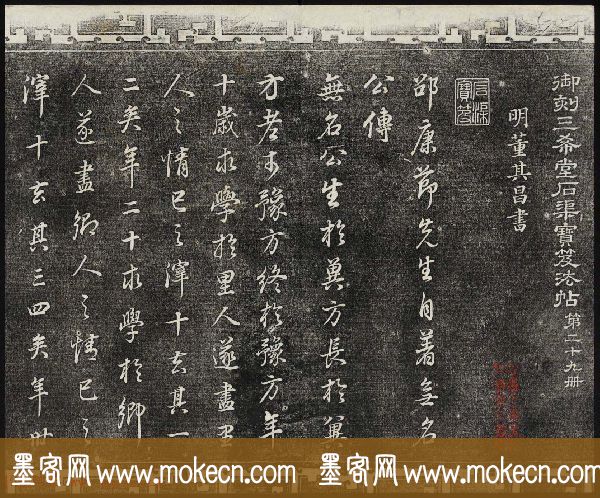 御刻三希堂石渠寶笈法帖 第二十九册
明董其昌書
石渠寶笈
邵康節先生自著無名
公傳
無名公生於冀方長於冀
方老於豫方終於豫方年
十歲求學於里人遂盡里
人之情已之滓十去其一
二矣年二十求學於鄉
人遂盡鄉人之情已之
滓十去其三四矣年
墨客网 www.mokecn.com 墨客网 www.mokecn.com